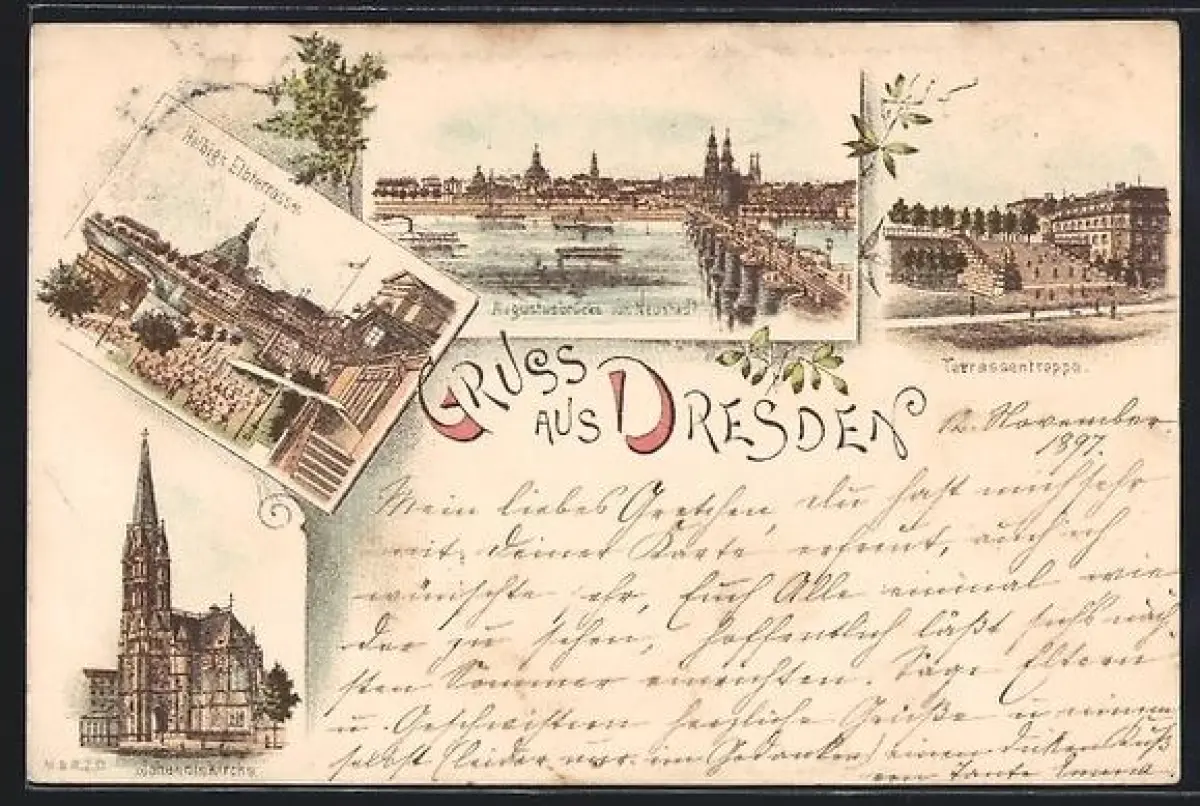 Helbig's Elbterrasse.
Augustusbrücke von Neustadt
Terrassentreppe.
GRUSS
AUS DRESDEN
12. November
1897.
Mein liebes Gretchen, du hast mich sehr
mit deiner Karte erfreut, auch ich
wünschte sehr, Euch Alle einmal wie
der zu sehen, hoffentlich läßt sichs näch
sten Sommer einrichten. Sage Eltern
u. Geschwistern herzliche Grüße u nimm
selbst (leider nur im Gedanken) einen dicken Kuß
von Tante Emma.
Johanniskirche